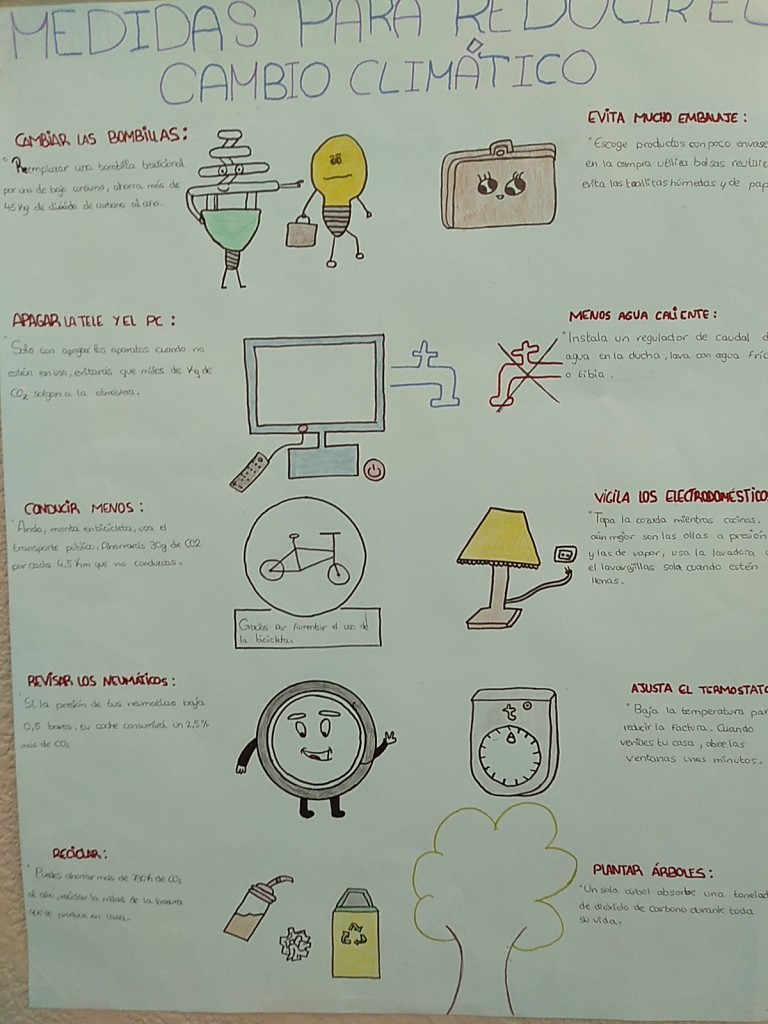 MEDIDAS PARA REDUCIR EL
CAMBIO CLIMÁTICO
CAMBIAR LAS BOMBILLAS:
"Reemplazar una bombilla tradicional
por una de bajo consumo, ahorra más de
45 Kg de dióxido de carbono al año.
EVITA MUCHO EMBALAJE:
"Escoge productos con poco envase
en la compra utiliza bolsas
evita las toallitas húmedas y de pap
APAGAR LA TELE Y EL PC:
"Solo con apagar los aparatos cuando no
estén en uso, evitarás que miles de Kg de
CO2 salgan a la atmósfera.
MENOS AGUA CALIENTE:
"Instala un regulador de caudal d
agua en la ducha, lava con agua fríc
o tibia.
CONDUCIR MENOS:
"Anda, monta en bicicleta, usa el
transporte público. Ahorrarás 30g de CO2
por cada 4.5 Km que no conduzcas.
Gracias por fomentar el uso de
la bicicleta.
VIGILA LOS ELECTRODOMÉSTICOS
"Tapa la cazuela mientras cocinas,
aún mejor son las ollas a presión
y las de vapor, usa la lavadora
el lavavajillas solo cuando estén
llenas.
REVISAR LOS NEUMÁTICOS:
"Si la presión de tus neumáticos baja
0,5 bares, tu coche consumirá un 2,5%
más de CO2
AJUSTA EL TERMOSTATO
"Baja la temperatura par
reducir la factura. Cuando
ventiles tu casa, abre las
ventanas unos minutos.
RECICLAR:
"Puedes ahorrar más de de CO2
al año, reciclar la mitad de la basura
que se produce en casa.
PLANTAR ÁRBOLES:
"Un solo árbol absorbe una tonelad
de dióxido de carbono durante toda
su vida.